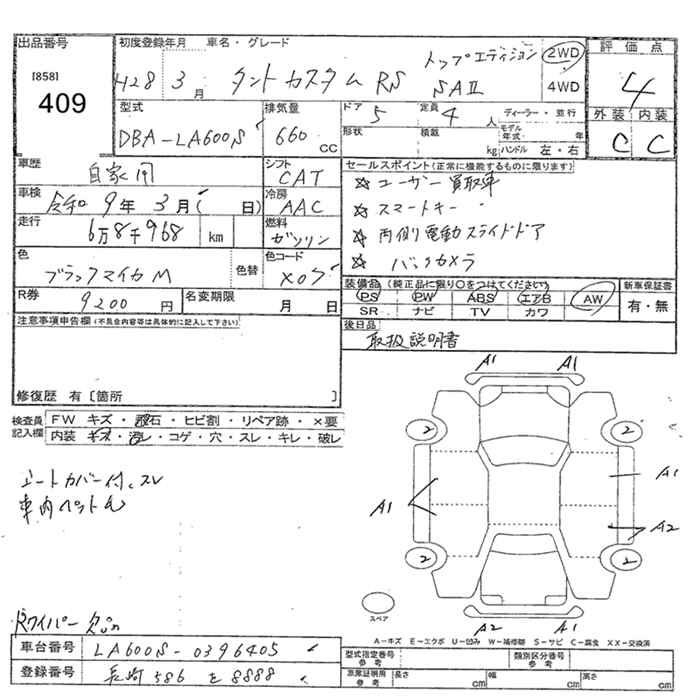 出品番号
[858]
409
初度登録年月 車名・グレード
H28 3月 タント カスタム RS トップエディション SAⅡ
2WD
4WD
評価点
4
外装 内装
C C
型式 排気量
DBA-LA600S 660 CC
ドア 5 定員 4 人
形状 積載 kg
ディーラー・並行
モデル年式 年
ハンドル 左・右
車歴 自家用
シフト CAT
車検 令和9年3月( 日)
冷房 AAC
走行 6万8千968 km
燃料 ガソリン
色 ブラックマイカM 色替
色コード X07
R券 9200円 名変期限 月 日
セールスポイント(正常に機能するものに限ります)
☆ユーザー買取車
☆スマートキー
☆両側電動スライドドア
☆バックカメラ
装備品(純正品に限り○をつけてください)
PS PW ABS エアB AW
SR ナビ TV カワ
新車保証書
有・無
後日品
取扱説明書
注意事項申告欄(不具合内容等は具体的に記入して下さい)
修復歴 有[箇所 ]
検査員記入欄
FW キズ・飛石・ヒビ割・リペア跡・×要
内装 キズ・汚レ・コゲ・穴・スレ・キレ・破レ
シートカバー付、スレ
車内ペット毛
Rワイパー欠品
A1 A1
2 2
A1 A1
A2
2 2
A2 A1
スペア
A-キズ E-エクボ U-凹み W-補修跡 S-サビ C-腐食 XX-交換済
車台番号 LA600S-0396405
登録番号 長崎 586 を 8888
型式指定番号 参考
類別区分番号 参考
車庫証明用 参考
長さ cm 幅 cm 高さ cm